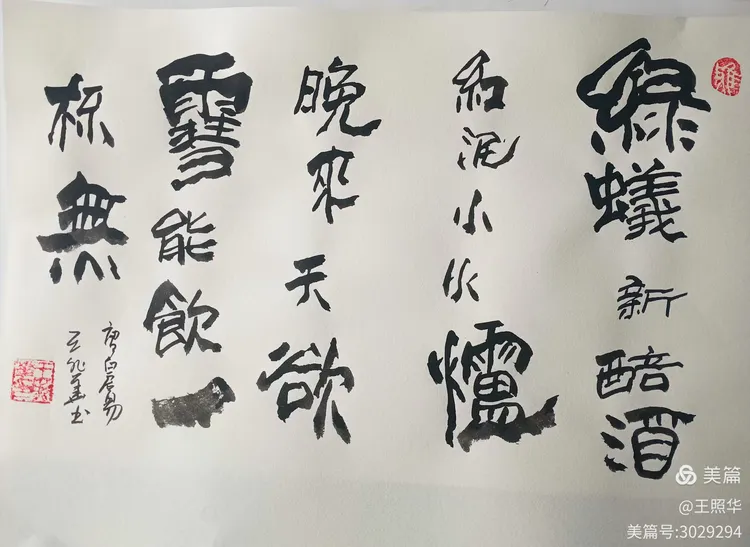 綠蟻新醅酒
紅泥小火爐
晚來天欲
雪能飲一
杯無
唐白居易
王照華书
美篇
@王照华
美篇号:3029294